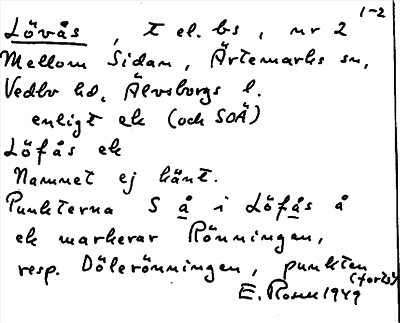 1-2
Lövås, t el. bs, nr 2
Mellom Sidan, Ärtemarks sn,
Vedbo hd, Älvsborgs l.
enligt ek (och SOÄ)
Löfås ek
Namnet ej känt.
Punkterna S å i Löfås å
ek markerar Rönningen,
resp. Dölerönningen, punkten
(forts)
E. Rosen 1949